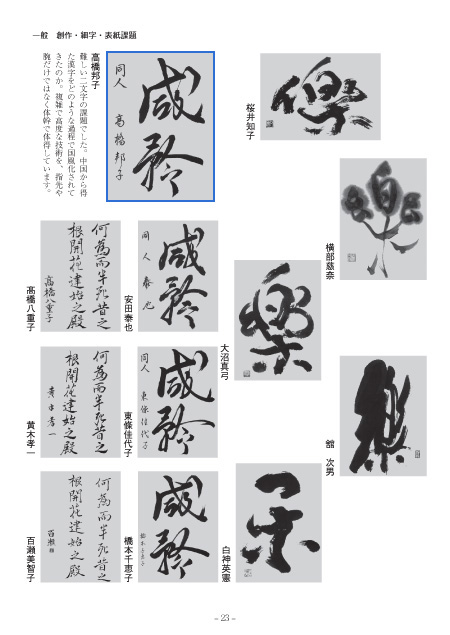 一般　創作・細字・表紙課題
桜井知子
横部慈奈
大沼真弓
舘　次男
白神英憲
咸
黔
同人　高橋邦子
高橋邦子
難しい二文字の課題でした。中国から得
た漢字をどのような過程で国風化されて
きたのか。複雑で高度な技術を、指先や
腕だけではなく体幹で体得しています。
同人　泰也
安田泰也
何為而半死昔之
根開花建始之殿
高橋八重子
髙橋八重子
同人　東條佳代子
東條佳代子
何為而半死昔之
根開花建始之殿
黄木孝一
黄木孝一
橋本千恵子
何為而半死昔之
根開花建始之殿
百瀬美智子
- 23 -